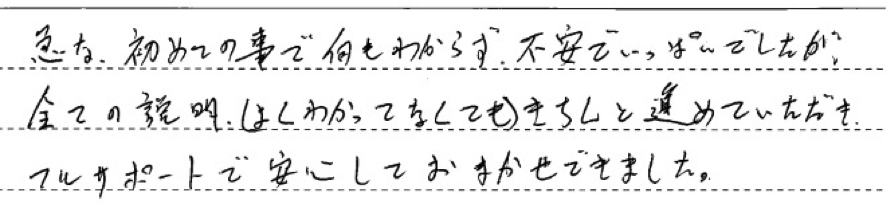 急な、初めての事で何もわからず、不安でいっぱいでしたが、
全ての説明、(よくわかってなくても)きちんと進めていただき、
フルサポートで安心しておまかせできました。